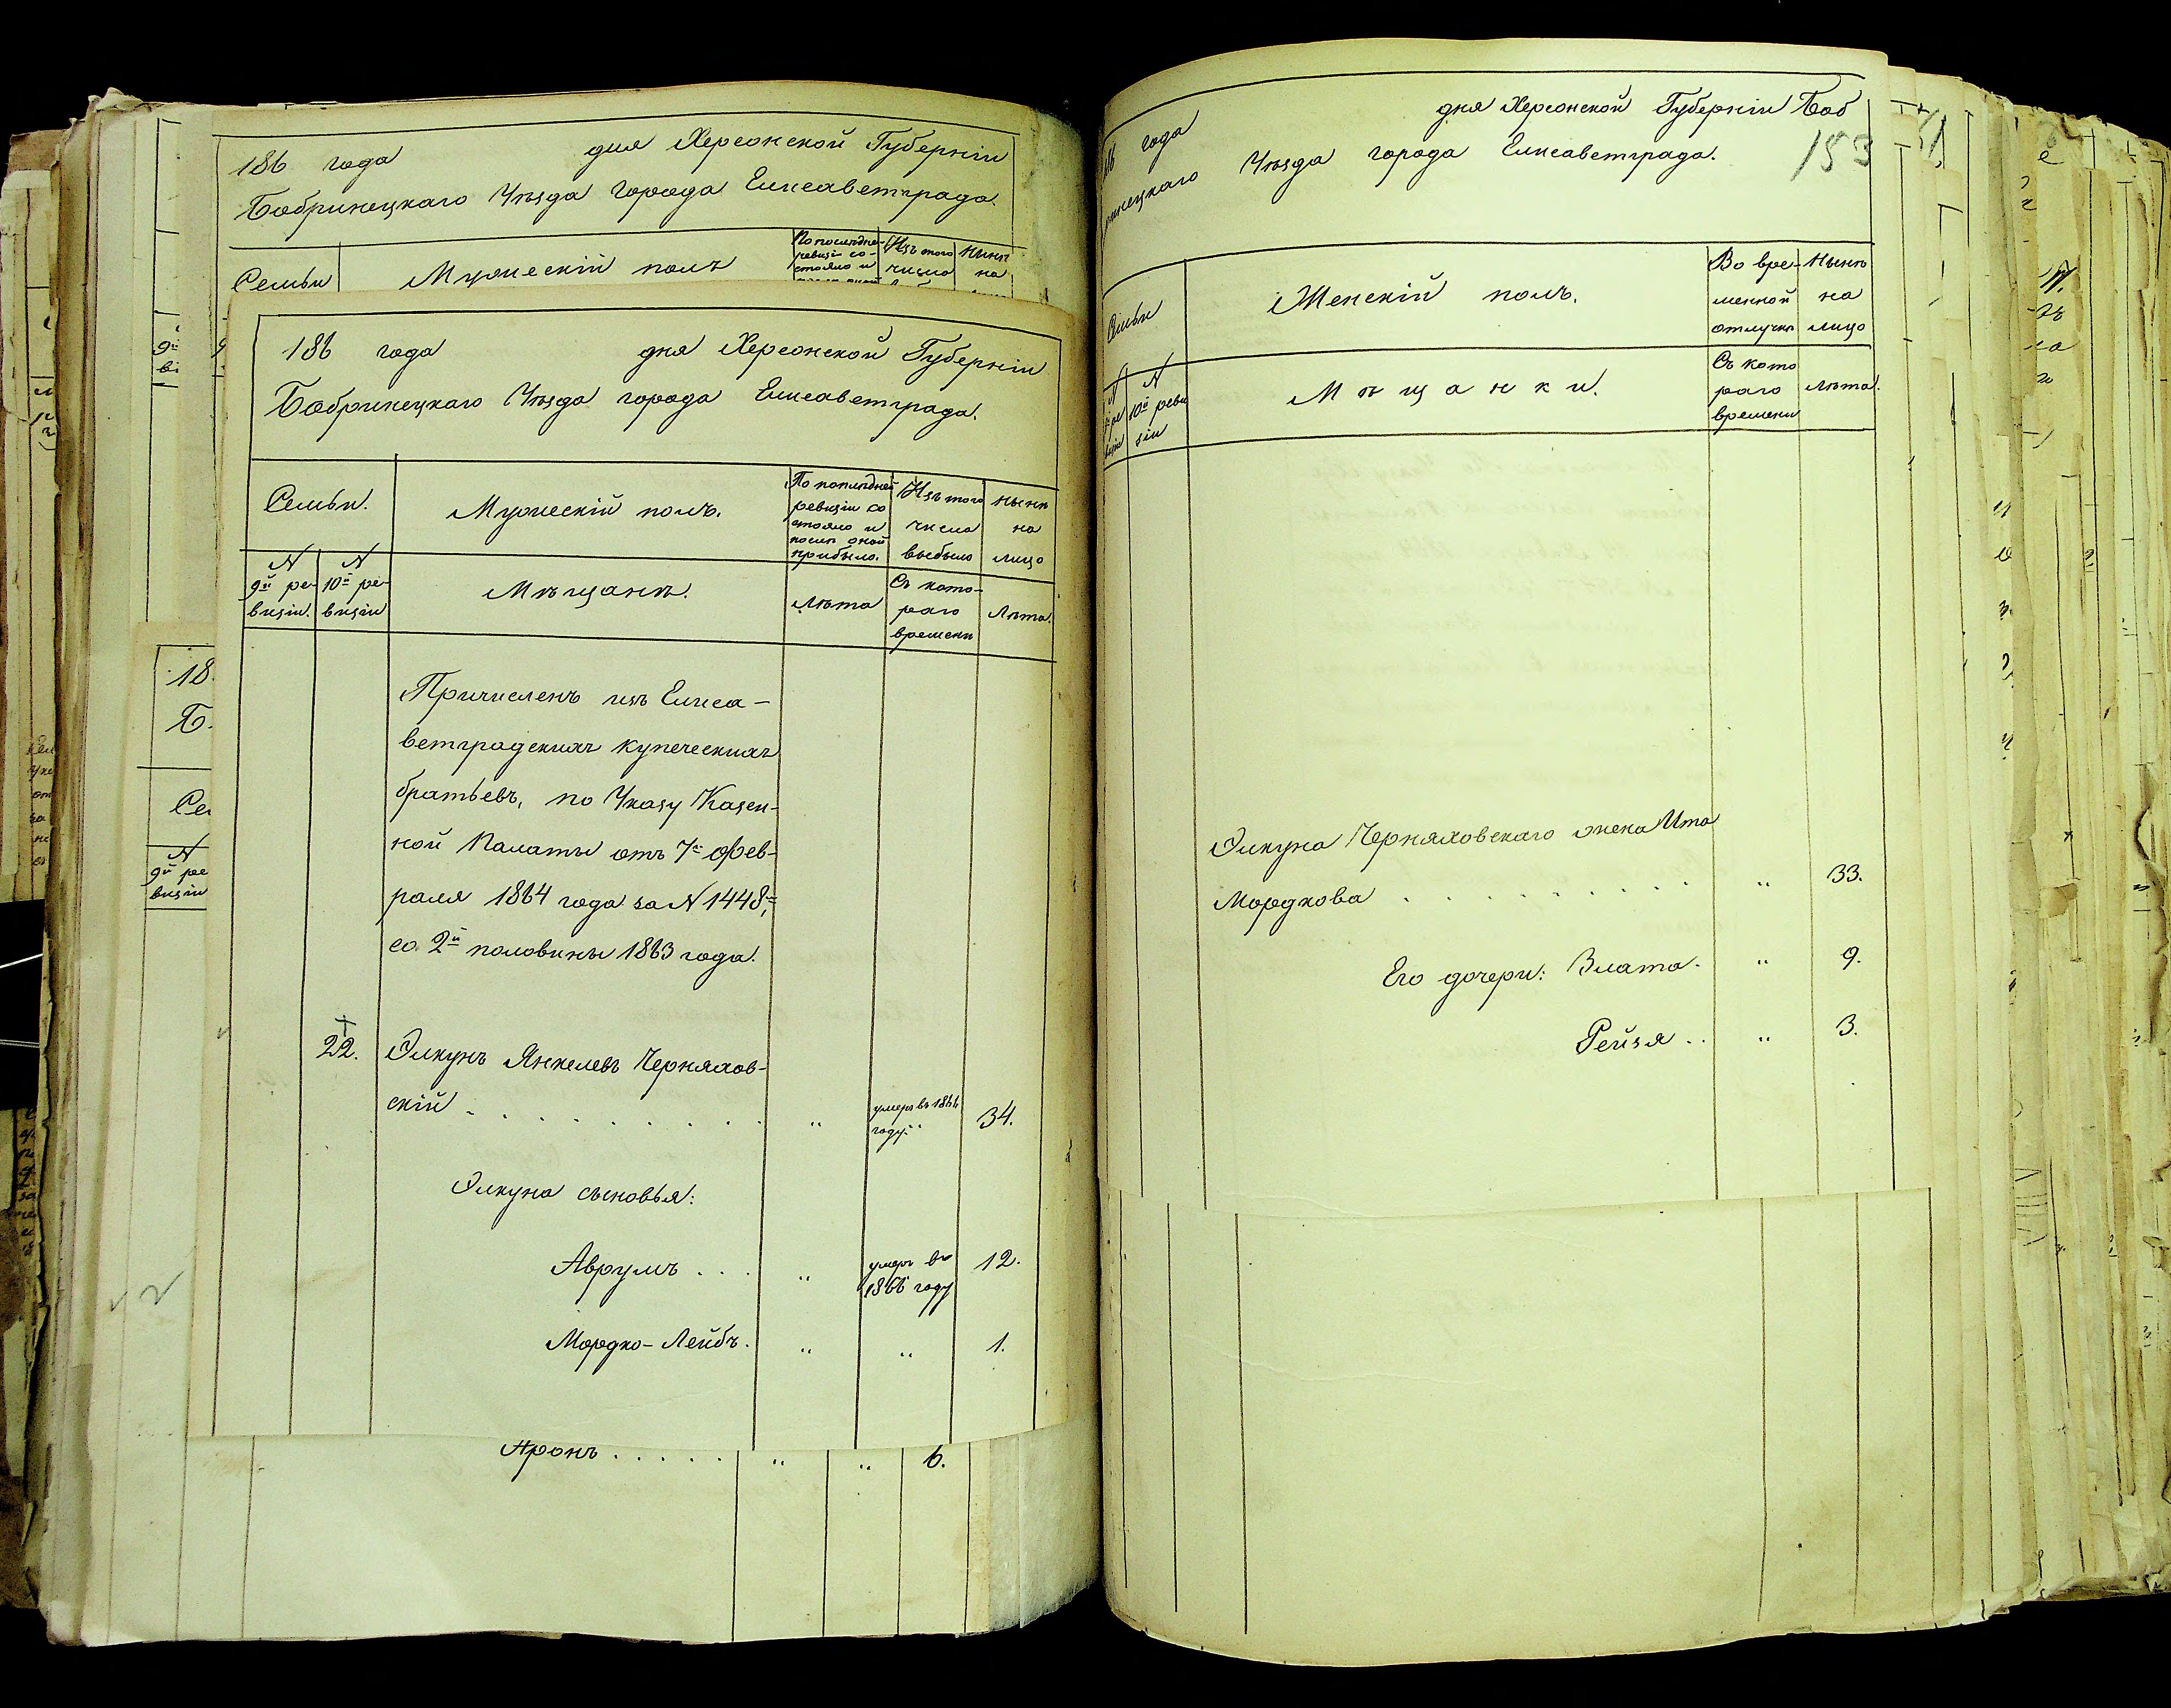 186 года дня Херсонской Губерніи
Бобринецкаго Уѣзда города Елисаветграда.
Семьи Мужескій полъ
По послѣдней
ревизіи со-
стояло и
Изъ того
числа
Нынѣ
на
186 года дня Херсонской Губерніи
Бобринецкаго Уѣзда города Елисаветграда.
Семьи.
Мужескій полъ.
По послѣдней
ревизіи со
стояло и
послѣ оной
прибыло.
Изъ того
числа
выбыло
Нынѣ
на
лицо
N
9й ре-
визіи.
N
10й ре-
визіи
Мѣщане.
Лѣта
Съ кото-
раго
времени
Лѣта.
Причисленъ изъ Елиса-
ветградскихъ купеческихъ
братьевъ, по Указу Казен-
ной Палаты отъ 7го Фев-
раля 1864 года за N 1448м,
со 2й половины 1863 года.
22. Элкунъ Янкелевъ Черняхов-
скій . . . . . . . . „ умеръ въ 1866 году. „ 34.
Элкуна сыновья:
Аврумъ . . . „ умеръ въ 1866 году 12.
Мордко-Лейбъ. „ „ 1.
Аронъ . . . . . „ „ 6.
18
Б
Се
N
9й ре
визіи
года дня Херсонской Губерніи Боб
ринецкаго Уѣзда города Елисаветграда.
153
Семьи
Женскій полъ.
Во вре-
менной
отлучкѣ
Нынѣ
на
лицо
N
N
10й реви
зіи
Мѣщанки.
Съ кото
раго
времени
Лѣта.
Элкуна Черняховскаго жена Ита
Мордкова . . . . . . . . . „ 33.
Его дочери: Злата. „ 9.
Рейзя . . „ 3.